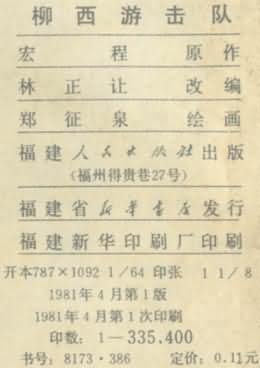 柳西游击队
宏程 原作
林正让 改编
郑征泉 绘画
福建人民出版社出版
(福州得贵巷27号)
福建省新华书店发行
福建新华印刷厂印刷
开本787×1092 1/64 印张 1 1/8
1981年4月第1版
1981年4月第1次印刷
印数：1—335.400
书号：8173·386 定价：0.11元